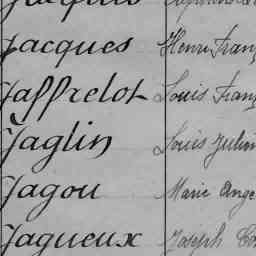 Jacques Henri Franç
Jaffrelot Louis Franç
Jaglin Louis Julien
Jagou Marie Ange
Jagueux Joseph